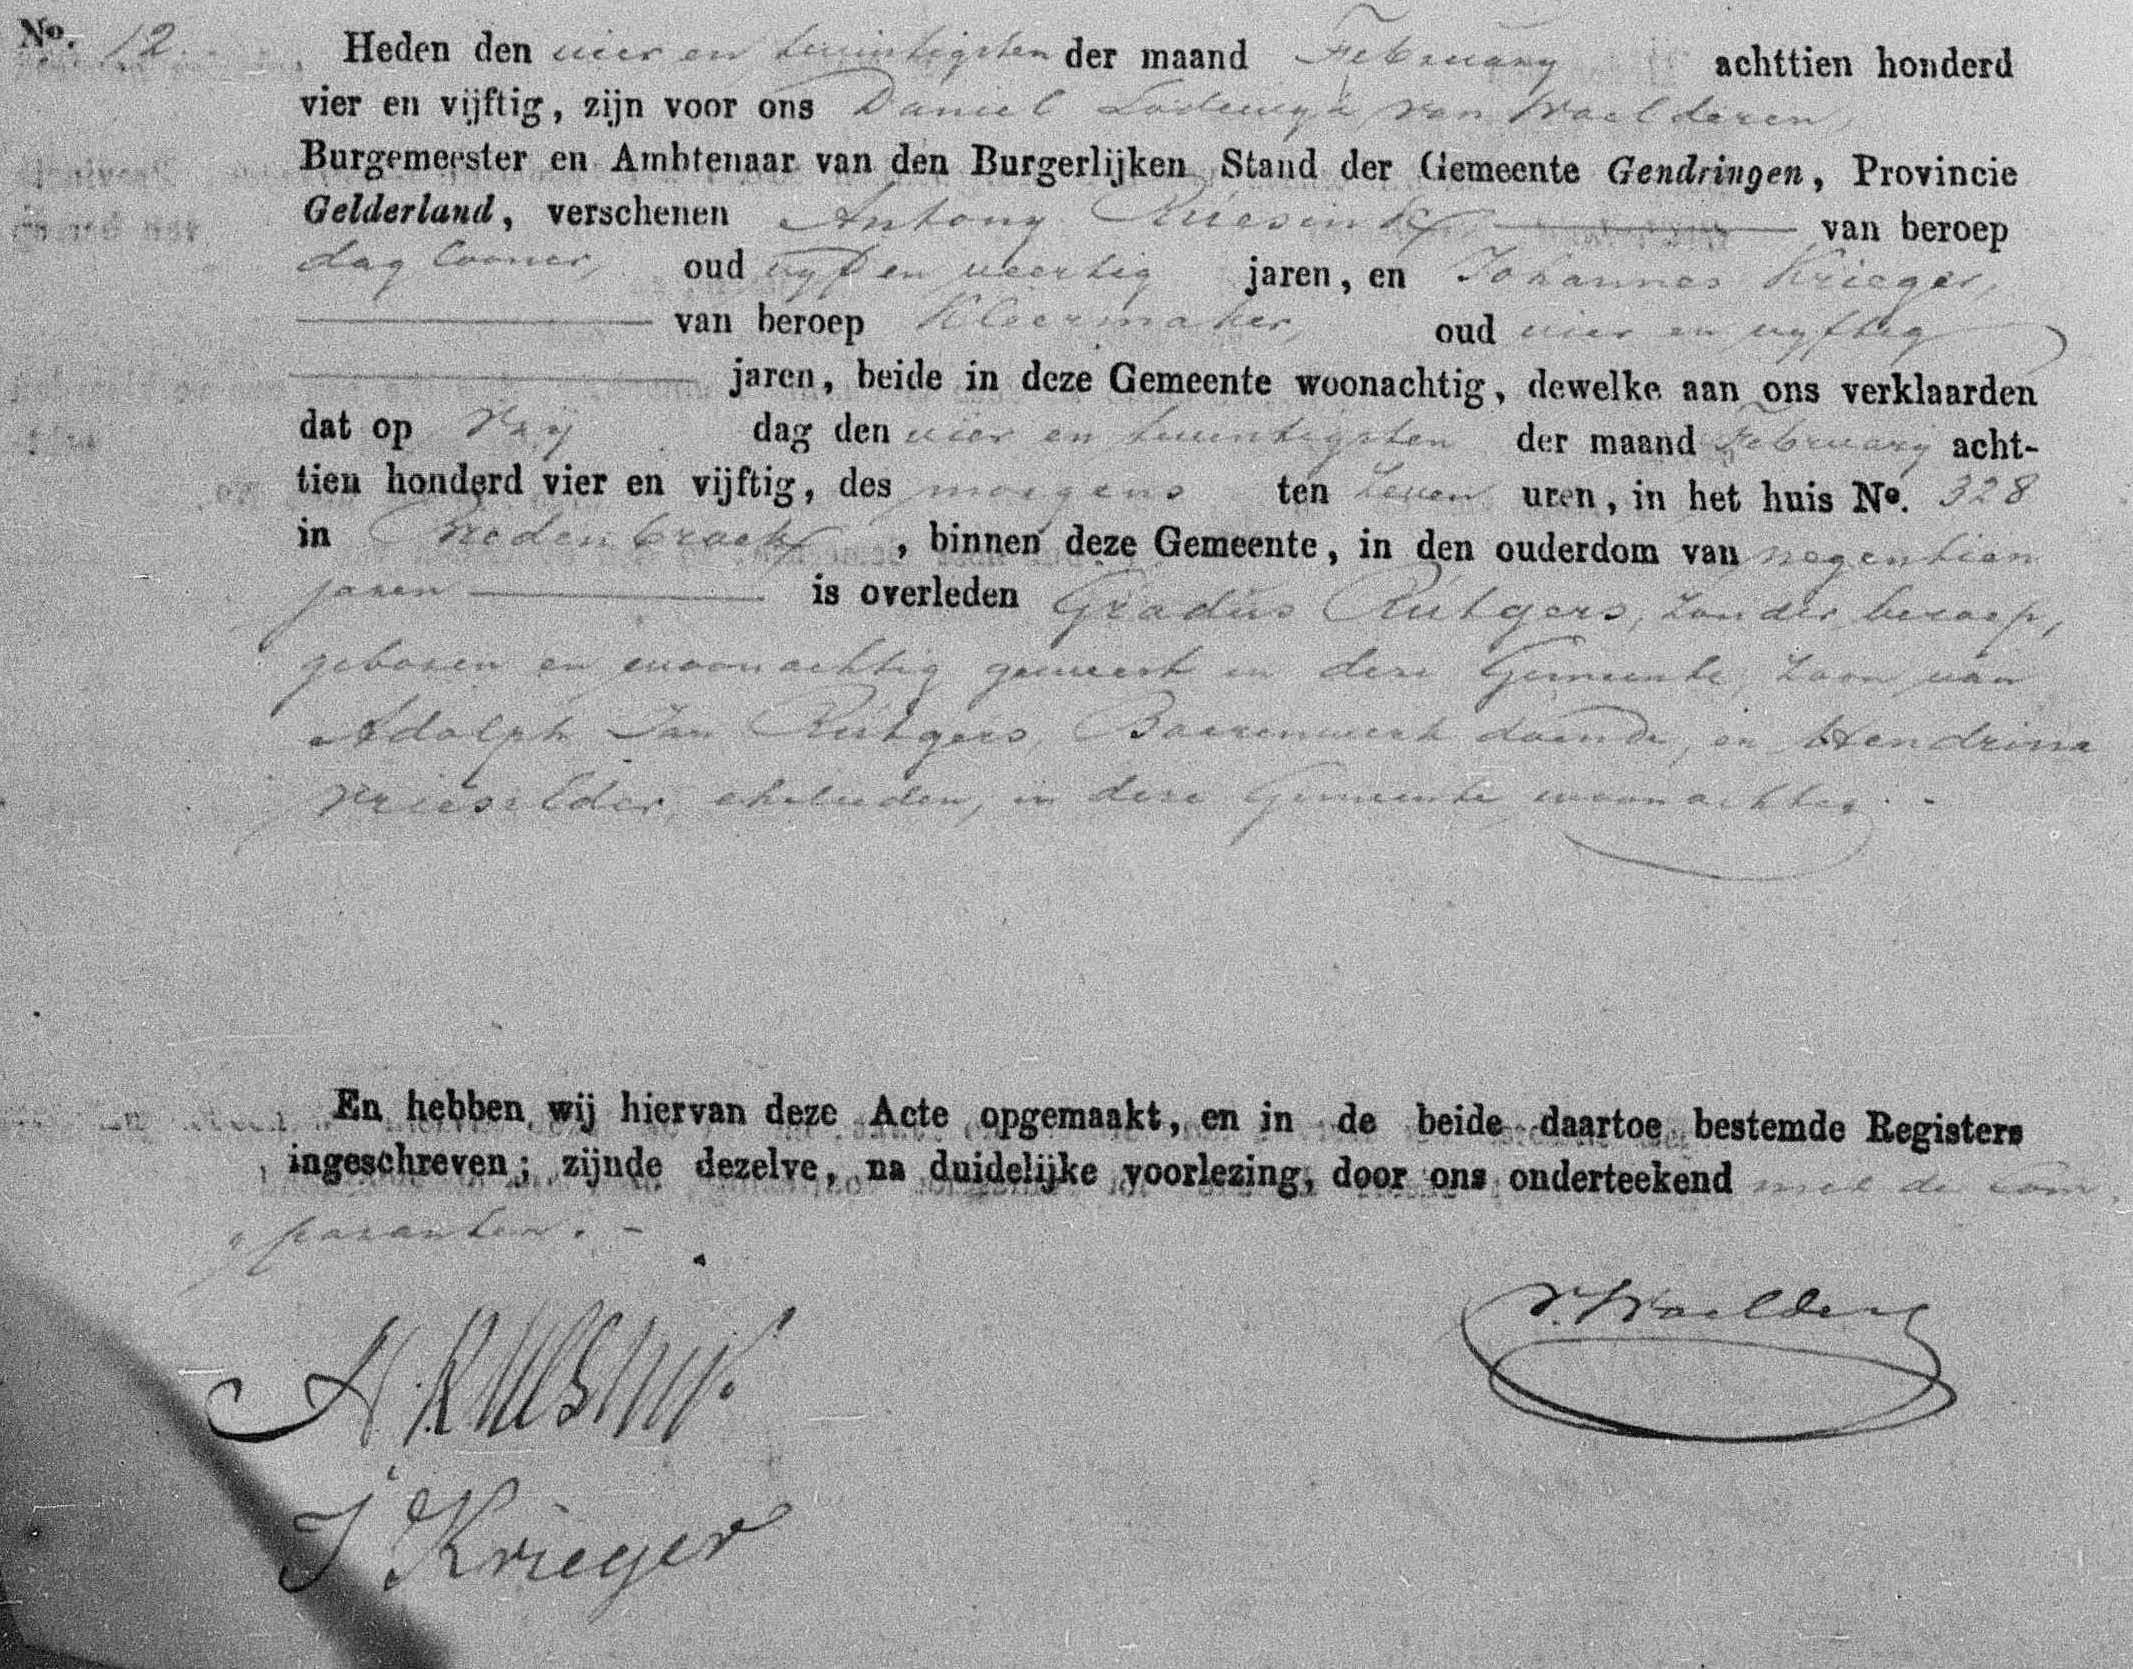 No. 12. Heden den vier en twintigsten der maand February achttien honderd
vier en vijftig, zijn voor ons Daniel Lodewyk van Waelderen,
Burgemeester en Ambtenaar van den Burgerlijken Stand der Gemeente Gendringen, Provincie
Gelderland, verschenen Antony Ruesink, van beroep
daglooner, oud vyf en veertig jaren, en Johannes Krieger,
van beroep Kleermaker, oud vier en vyftig
jaren, beide in deze Gemeente woonachtig, dewelke aan ons verklaarden
dat op Vry dag den vier en twentigsten der maand February acht-
tien honderd vier en vijftig, des morgens ten zeven uren, in het huis No. 328
in Bredenbroek, binnen deze Gemeente, in den ouderdom van negentien
jaren is overleden Gradus Rutgers, zonder beroep,
geboren en woonachtig geweest in deze Gemeente, zoon van
Adolph Jan Rutgers, Boerenwerk doende, en Hendrina
ehelieden, in deze Gemeente woonachtig. -
En hebben wij hiervan deze Acte opgemaakt, en in de beide daartoe bestemde Registers
ingeschreven; zijnde dezelve, na duidelijke voorlezing, door ons onderteekend met de com-
paranten. -
v. Waelderen
A. Ruesink
J Krieger